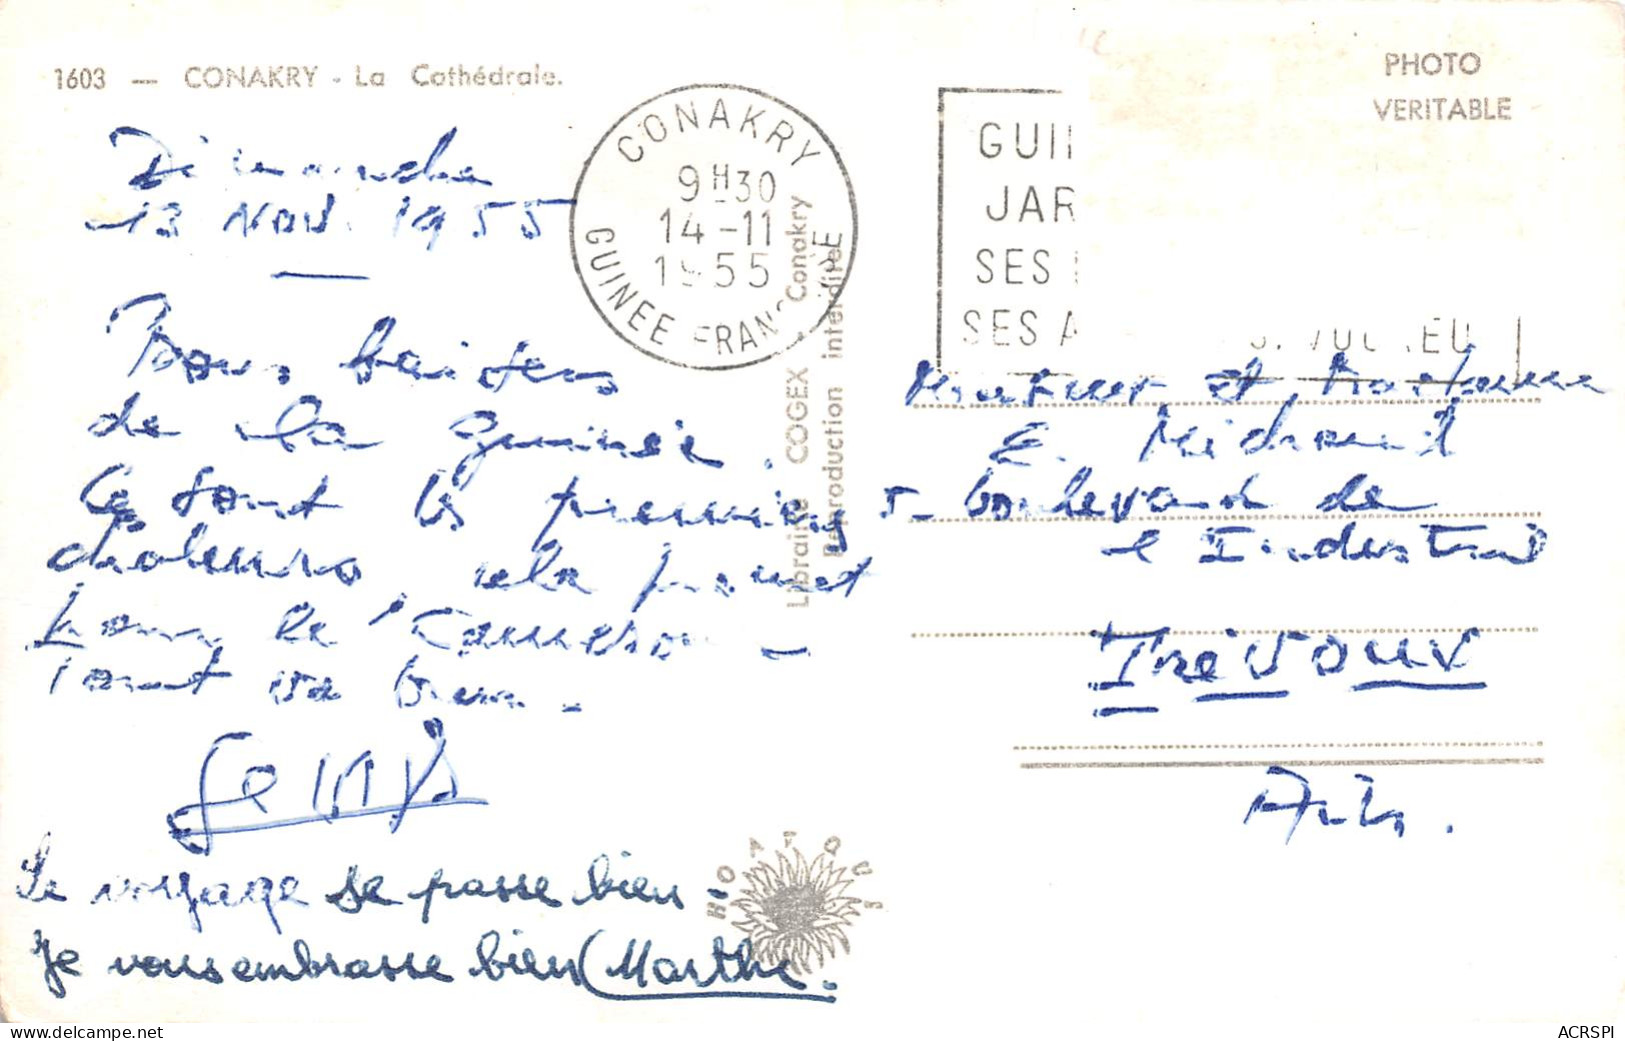 1603 — CONAKRY - La Cathédrale.
Dimanche
13 Nov. 1955
Bons baisers
de la Guinée.
Ce sont les premières
chaleurs, cela promet
pour le Cameroun -
Tout va bien -
Le voyage se passe bien -
Je vous embrasse bien Marthe.
CONAKRY
9H30
14-11
1955
GUINEE FRANÇAISE
Librairie COGEX - Conakry
Reproduction interdite
HOA-QUI
PHOTO
VERITABLE
GUI
JAR
SES
SES A
Monsieur et Madame
E. Michaud
5- boulevard de
l'Industrie
Trévoux
Ain.
ACRSPI